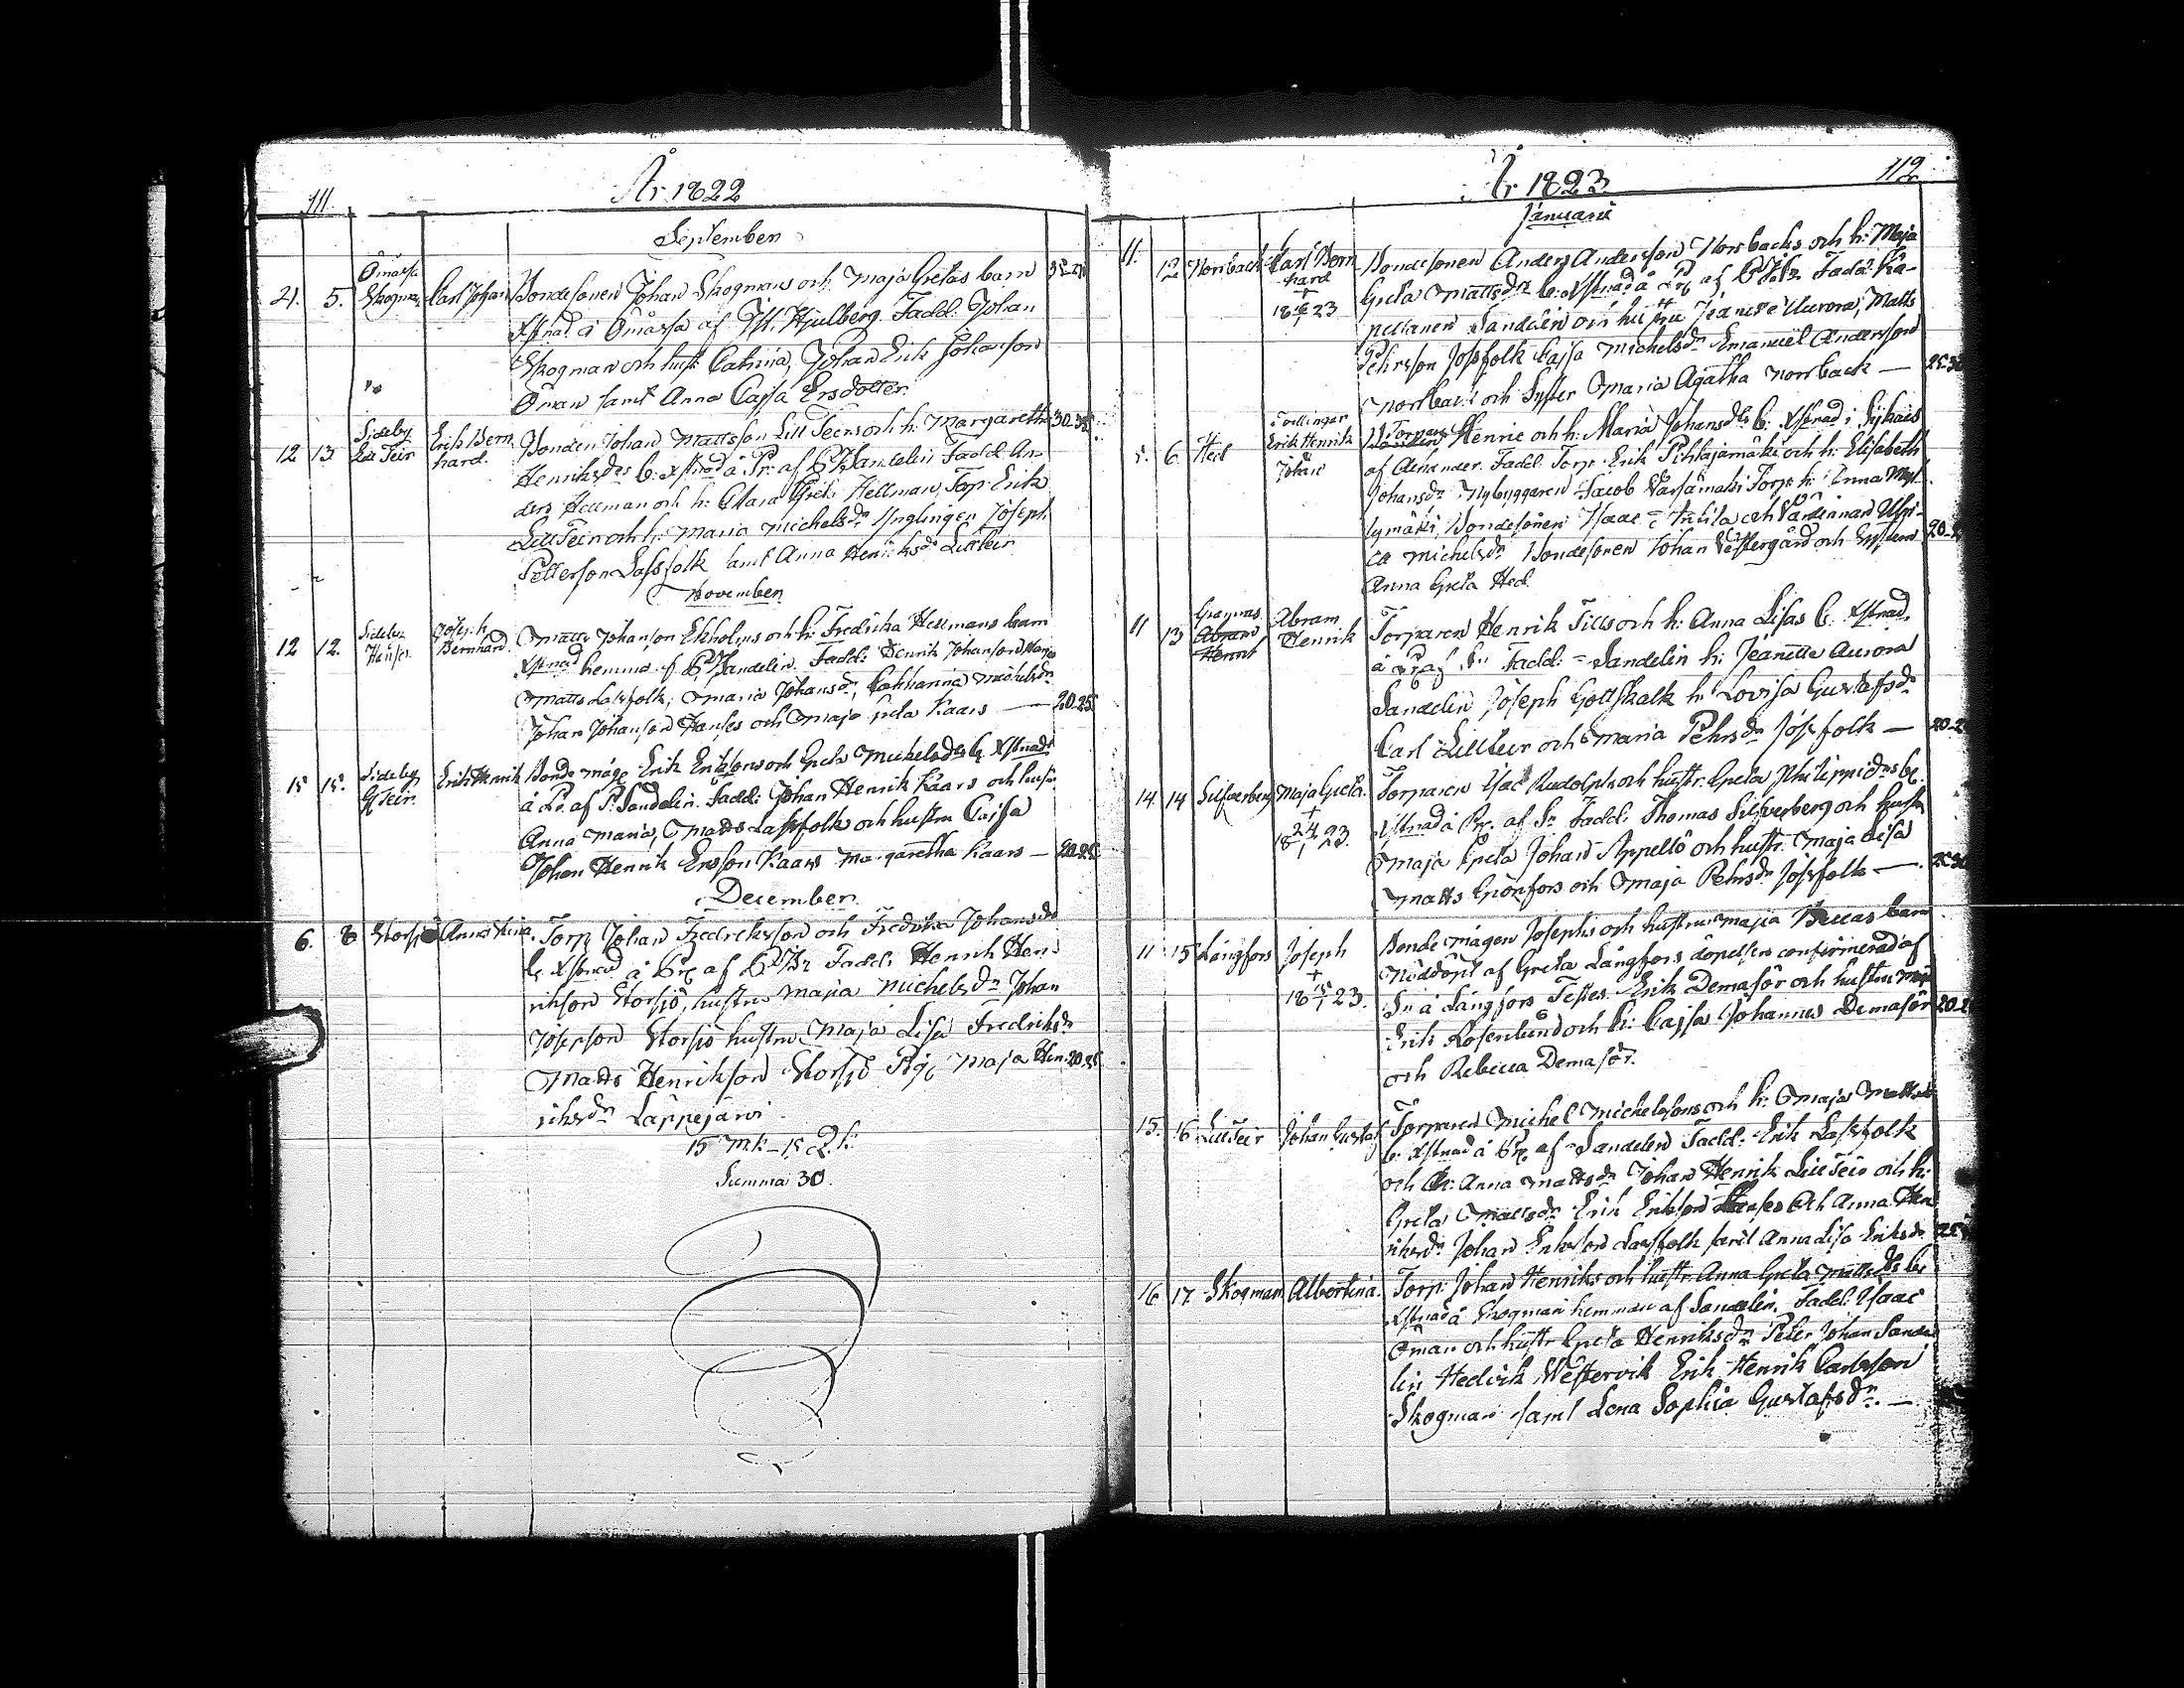 111.
År 1822
September
21. 5. Ömossa Skogman Carl Johan Bondesonen Johan Skogmans och Maja Gretas barn
Xstnad å Ömossa af Hjulberg. Fadd: Johan
Skogman och hust: Catrina, Johan Erik Johanson
Öman samt Anna Cajsa Ersdotter.
12 13 Sideby Lill Teir Erik Bernhard. Bonden Johan Mattsson Lill Teirs och h: Margaretha 30.35
Henriksdrs b: Xstnad å Pr: af Sandelin Fadd: An-
ders Hellman och h: Clara Gret: Hellman, Torp: Erik
LillTeir och h: Maria Michelsdr Ynglingen Joseph
Petterson Lassfolk samt Anna Henriksdr Lillteir
November
12 12. Sideby Joseph Bernhard. Matts Johanson Ekholms och h: Fredrika Hellmans barn
Xstnad hemma af Sandelin. Fadd: Henrik Johanson
Matts Lassfolk, Maria Johansdr, Catharina Michelsdr
Johan Johanson Hanses och Maja Greta Kaars — 20.25
15 15. Sideby Teir. Erik Henrik Bonde måge Erik Eriksons och Greta Michelsdrs b: Xstnadt
å Pr. af P: Sandelin. Fadd: Johan Henrik Kaars och hust:
Anna Maria, Matts Lassfolk och hustru Cajsa
Johan Henrik Ersson Kaars Margaretha Kaars — 20.25
December.
6. 8 Storsjö Anna Stina. Torp: Johan Fredrikson och Fredrika Johansdrs
b: Xstnad å Pr: af Fadd: Henrik Hen-
rikson Storsjö, hustru Maria Michelsdr Johan
Joseson Storsjö hustru Maja Lisa Fredriksdr
Matts Henrikson Storsjö Pig: Maja Hen- 20.25
riksdr Lappejärvi.
15 Mk – 15 Q.k:
Summa 30.
112.
År 1823
Januarii
11. 12 Norrback Carl Bernhard + 18 23 Bondesonen Anders Anderson Norrbacks och h: Maja
Greta Mattsdrs b: Xstnad å Pr: af Fadd: Ka-
pellanen Sandelin och hustru Jeanette Aurora, Matts
Pehrsson Josfolk Cajsa Michelsdr Emanuel Anderson
Norrback och Syster Maria Agatha Norrback —
5. 6. Hed Tvillingar Erik Henrik Johan Torparen Henric och h: Maria Johansdrs b: Xstnad i
af Alhander. Fadd: Torp: Erik Pihlajamäki och h: Elisabeth
Johansdr Nybyggaren Jacob Torp: h: Anna Myl-
lymäki, Bondesonen Isaac Anttila och Ulri-
ca Michelsdr Bondesonen Johan Vestergård och Systern
Anna Greta Hed.
11 13 Abram Henrik Torparen Henrik Tills och h: Anna Lisas b: Xstnad.
å Pr. af Sn Fadd: Sandelin h: Jeanette Aurora
Sandelin, Joseph Gottskalk h: Lovisa Gustafsdr
Carl Lillteir och Maria Pehrsdr Josfolk —
14. 14 Silfverberg Maja Greta. + 18 24/1 23. Torparen Isac Rudolphs och hustr: Greta Philippidrs b:
Xstnad å Pr: af Sn Fadd: Thomas Silfverberg och hustr
Maja Greta Johan Appellö och hustr: Maja Lisa
Matts Grönfors och Maja Pehrsdr Josfolk —
11 15 Långfors Joseph + 18 15/1 23. Bonde mågen Josephs och hustrus Maja Beccas barn
Nöddöpt af Greta Långfors döpelsen confirmerad af
Sn å Långfors Testes: Erik Demasör och hustru
Erik Rosenlund och h: Cajsa Johannes Demasör
och Rebecca Demasör.
15. 16 Lillteir Johan Gustaf Torparen Michel Michelssons och h: Majas Mattsdr
b: Xstnad å Pr: af Sandelin Fadd: Erik Lassfolk
och h: Anna Mattsdr Johan Henrik Lillteir och h:
Greta Mattsdr Erik Erikson Hanses och Anna Hen
riksdr Johan Erikson Lassfolk samt Anna Lisa Eriksdr
16 17. Skogman Albertina. Torp: Johan Henriks och hustr: Anna Greta Mattsdrs b:
Xstnad å Skogman hemman af Sandelin. Fadd: Isaac
Öman och hustr: Greta Henriksdr Peter Johan Sande-
lin Hedvik Westervik Erik Henrik Carlsson
Skogman samt Lena Sophia Gustafsdr. —